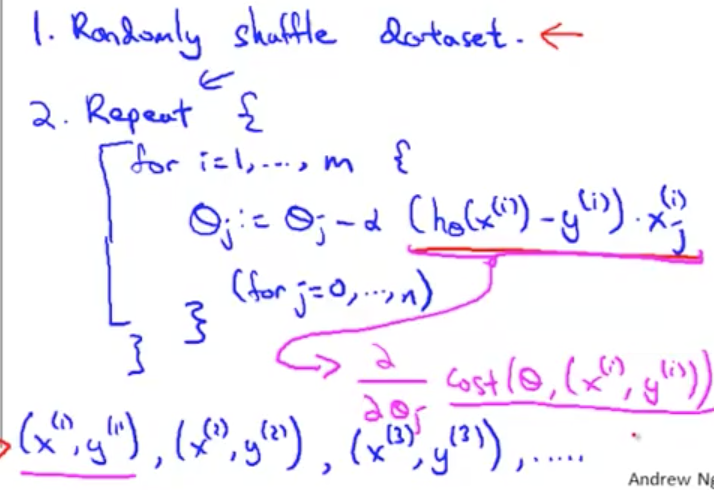 1. Randomly shuffle dataset. ←
2. Repeat {
for i=1,..., m {
θj := θj - α (hθ(x^(i)) - y^(i)) · xj^(i)
(for j=0,...,n)
}
}
∂/∂θj cost(θ, (x^(i), y^(i)))
(x^(1), y^(1)), (x^(2), y^(2)), (x^(3), y^(3)), .....
Andrew Ng